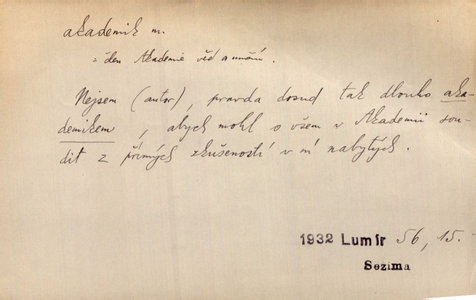 akademik m.
= člen Akademie věd a umění.
Nejsem (autor), pravda dosud tak dlouho aka-
demikem, abych mohl o všem v Akademii sou-
dit z přímých zkušeností v ní nabytých.
1932 Lumír 56, 15.
Sezima